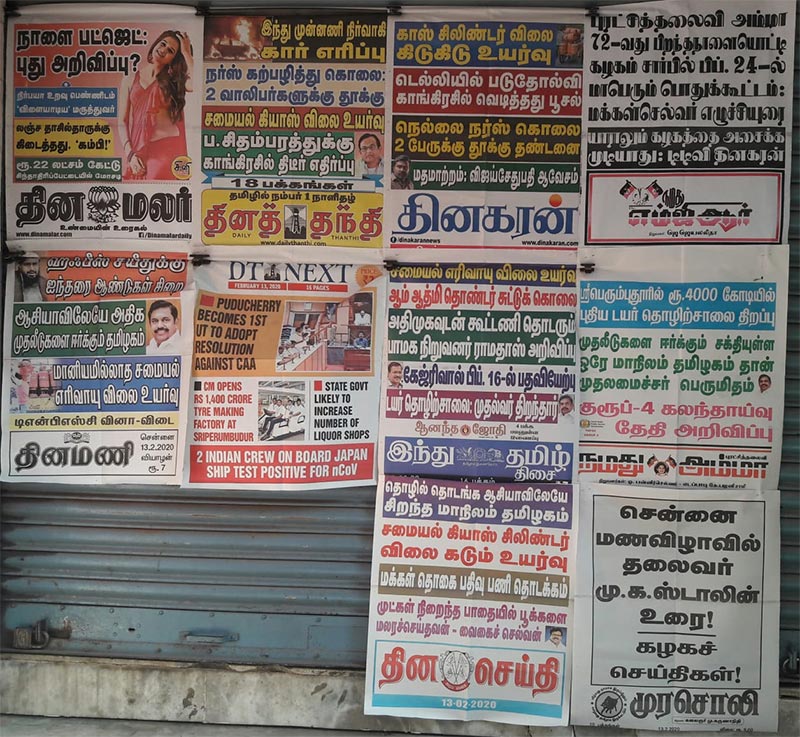 நாளை பட்ஜெட்:
புது அறிவிப்பு?
நிர்பயா உறவு பெண்ணிடம்
'விளையாடிய' மருத்துவர்
லஞ்ச தாசில்தாருக்கு
கிடைத்தது, 'கம்பி!'
ரூ.22 லட்சம் கேட்டு
சிந்தாதிரிப்பேட்டையில் மோசடி
தின மலர்
உண்மையின் உரைகல்
www.dinamalar.com
/Dinamalardaily
இந்து முன்னணி நிர்வாகி
கார் எரிப்பு
நர்ஸ் கற்பழித்து கொலை:
2 வாலிபர்களுக்கு தூக்கு
சமையல் கியாஸ் விலை உயர்வு
ப.சிதம்பரத்துக்கு
காங்கிரசில் திடீர் எதிர்ப்பு
18 பக்கங்கள்
தமிழில் நம்பர் 1 நாளிதழ்
தினத் தந்தி
DAILY THANTHI
www.dailythanthi.com
காஸ் சிலிண்டர் விலை
கிடுகிடு உயர்வு
டெல்லியில் படுதோல்வி
காங்கிரசில் வெடித்தது பூசல்
நெல்லை நர்ஸ் கொலை
2 பேருக்கு தூக்கு தண்டனை
மதமாற்றம்: விஜய்சேதுபதி ஆவேசம்
தினகரன்
/dinakarannews
www.dinakaran.com
புரட்சித்தலைவி அம்மா
72-வது பிறந்தநாளையொட்டி
கழகம் சார்பில் பிப். 24-ல்
மாபெரும் பொதுக்கூட்டம்:
மக்கள்செல்வர் எழுச்சியுரை
யாராலும் கழகத்தை அசைக்க
முடியாது: டிடிவி தினகரன்
நமது
எம்ஜிஆர்
நிறுவனர்: ஜெ ஜெயலலிதா
ஹபீஸ் சயீதுக்கு
ஐந்தரை ஆண்டுகள் சிறை
ஆசியாவிலேயே அதிக
முதலீடுகளை ஈர்க்கும் தமிழகம்
மானியமில்லாத சமையல்
எரிவாயு விலை உயர்வு
டிஎன்பிஎஸ்சி வினா-விடை
தினமணி
சென்னை
13.2.2020
வியாழன்
ரூ. 7
DT NEXT
FEBRUARY 13, 2020
16 PAGES
PUDUCHERRY
BECOMES 1ST
UT TO ADOPT
RESOLUTION
AGAINST CAA
CM OPENS
RS 1,400 CRORE
TYRE MAKING
FACTORY AT
SRIPERUMBUDUR
STATE GOVT
LIKELY TO
INCREASE
NUMBER OF
LIQUOR SHOPS
2 INDIAN CREW ON BOARD JAPAN
SHIP TEST POSITIVE FOR nCoV
சமையல் எரிவாயு விலை உயர்வு
ஆம் ஆத்மி தொண்டர் சுட்டுக் கொலை
அதிமுகவுடன் கூட்டணி தொடரும்
பாமக நிறுவனர் ராமதாஸ் அறிவிப்பு
கேஜ்ரிவால் பிப். 16-ல் பதவியேற்பு
டயர் தொழிற்சாலை: முதல்வர் திறந்தார்
ஆனந்த ஜோதி
இந்து தமிழ்
திசை
ஸ்ரீபெரும்புதூரில் ரூ.4000 கோடியில்
புதிய டயர் தொழிற்சாலை திறப்பு
முதலீடுகளை ஈர்க்கும் சக்தியுள்ள
ஒரே மாநிலம் தமிழகம் தான்
முதலமைச்சர் பெருமிதம்
குரூப்-4 கலந்தாய்வு
தேதி அறிவிப்பு
புரட்சித்தலைவி
நமது அம்மா
தொழில் தொடங்க ஆசியாவிலேயே
சிறந்த மாநிலம் தமிழகம்
சமையல் கியாஸ் சிலிண்டர்
விலை கடும் உயர்வு
மக்கள் தொகை பதிவு பணி தொடக்கம்
முட்கள் நிறைந்த பாதையில் பூக்களை
மலரச்செய்தவன் - வைகைச் செல்வன்
தின செய்தி
13-02-2020
சென்னை
மணவிழாவில்
தலைவர்
மு.க.ஸ்டாலின்
உரை!
கழகச்
செய்திகள்!
முரசொலி
13.2.2020